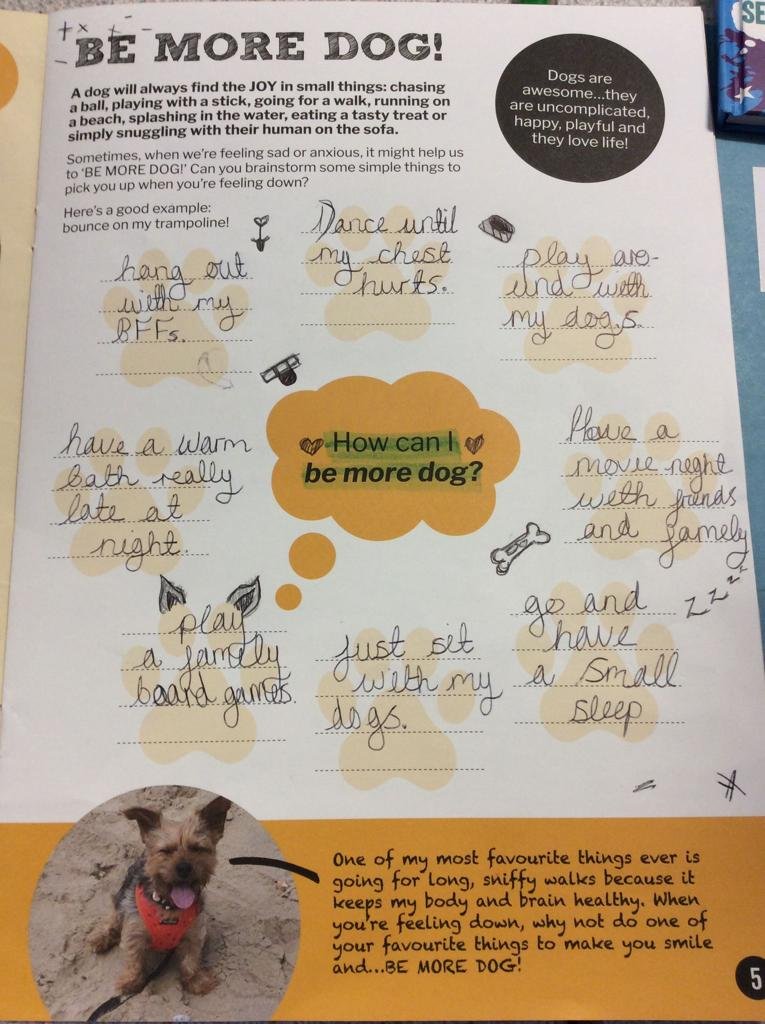 BE MORE DOG!
A dog will always find the JOY in small things: chasing
a ball, playing with a stick, going for a walk, running on
a beach, splashing in the water, eating a tasty treat or
simply snuggling with their human on the sofa.
Dogs are
awesome...they
are uncomplicated,
happy, playful and
they love life!
Sometimes, when we're feeling sad or anxious, it might help us
to 'BE MORE DOG!' Can you brainstorm some simple things to
pick you up when you're feeling down?
Here's a good example:
bounce on my trampoline!
hang out
with my
BFFs.
Dance until
my chest
hurts.
play aro-
und with
my dogs.
have a warm
bath really
late at
night.
How can I
be more dog?
Have a
movie night
with friends
and family
play
a family
board games.
just sit
with my
dogs.
go and
have
a small
sleep
z z z z
One of my most favourite things ever is
going for long, sniffy walks because it
keeps my body and brain healthy. When
you're feeling down, why not do one of
your favourite things to make you smile
and...BE MORE DOG!
5
SE